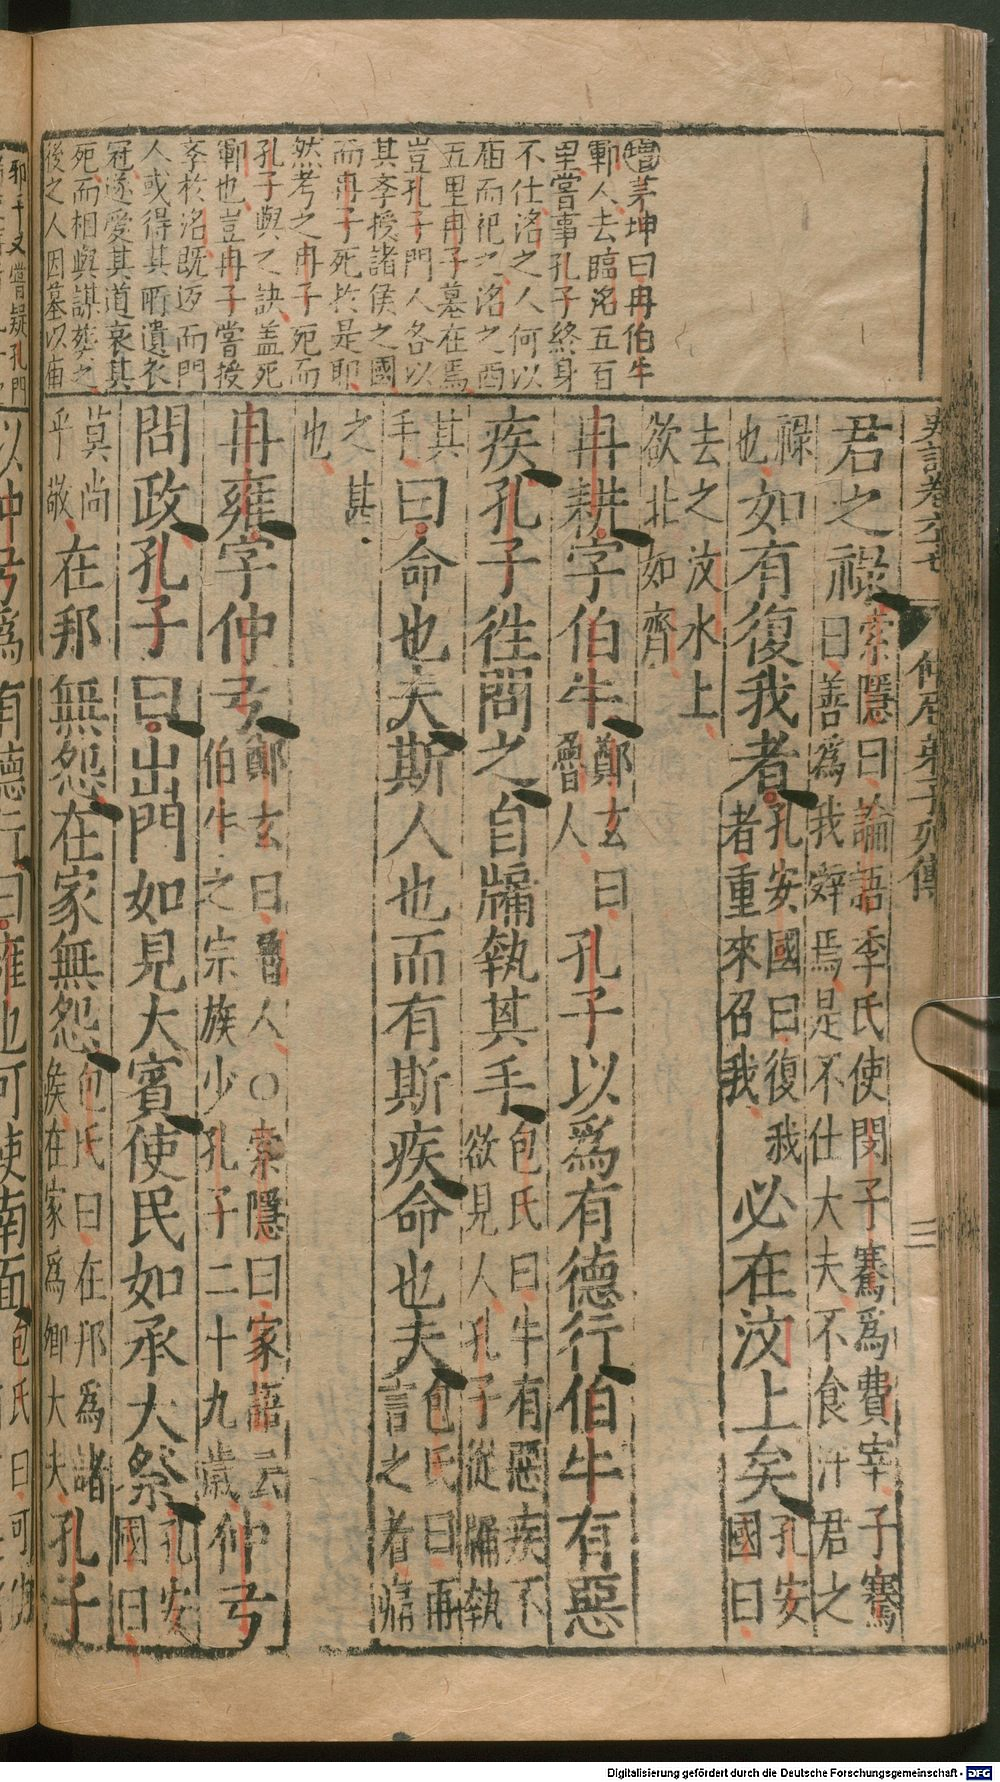 增茅坤曰冉伯牛
鄆人去臨洺五百
里嘗事孔子終身
不仕洺之人何以
庙而祀之洺之西
五里冉子墓在焉
豈孔子門人各以
其李授諸侯之國
而冉子死扵是耶
然考之冉子死而
孔子與之訣盖死
鄆也豈冉子嘗授
李扵洺既返而門
人或得其所遺衣
冠遂愛其道哀其
死而相與謀葬之
後之人因墓以庙
史記卷六七
仲尼弟子列傳
三
君之祿索隱曰論語季氏使閔子騫爲費宰子騫
曰善爲我辤焉是不仕大夫不食汙君之
祿
也如有復我者孔安國曰復我
者重來召我必在汶上矣孔安
國曰
去之汶水上
欲北如齊
冉耕字伯牛鄭玄曰
魯人孔子以爲有德行伯牛有惡
疾孔子徃問之自牖執其手包氏曰牛有惡疾不
欲見人孔子從牖執
其
手曰命也夫斯人也而有斯疾命也夫包氏曰再
言之者痛
之甚
也
冉雍字仲弓鄭玄曰魯人○索隱曰家語云
伯牛之宗族少孔子二十九歲仲弓
問政孔子曰出門如見大賓使民如承大祭孔安
國曰
莫尚
乎敬在邦無怨在家無怨包氏曰在邦爲諸
侯在家爲卿大夫孔子
以仲弓爲有德行曰雍也可使南面包氏曰可
邪予又嘗疑孔門
Digitalisierung gefördert durch die Deutsche Forschungsgemeinschaft - DFG